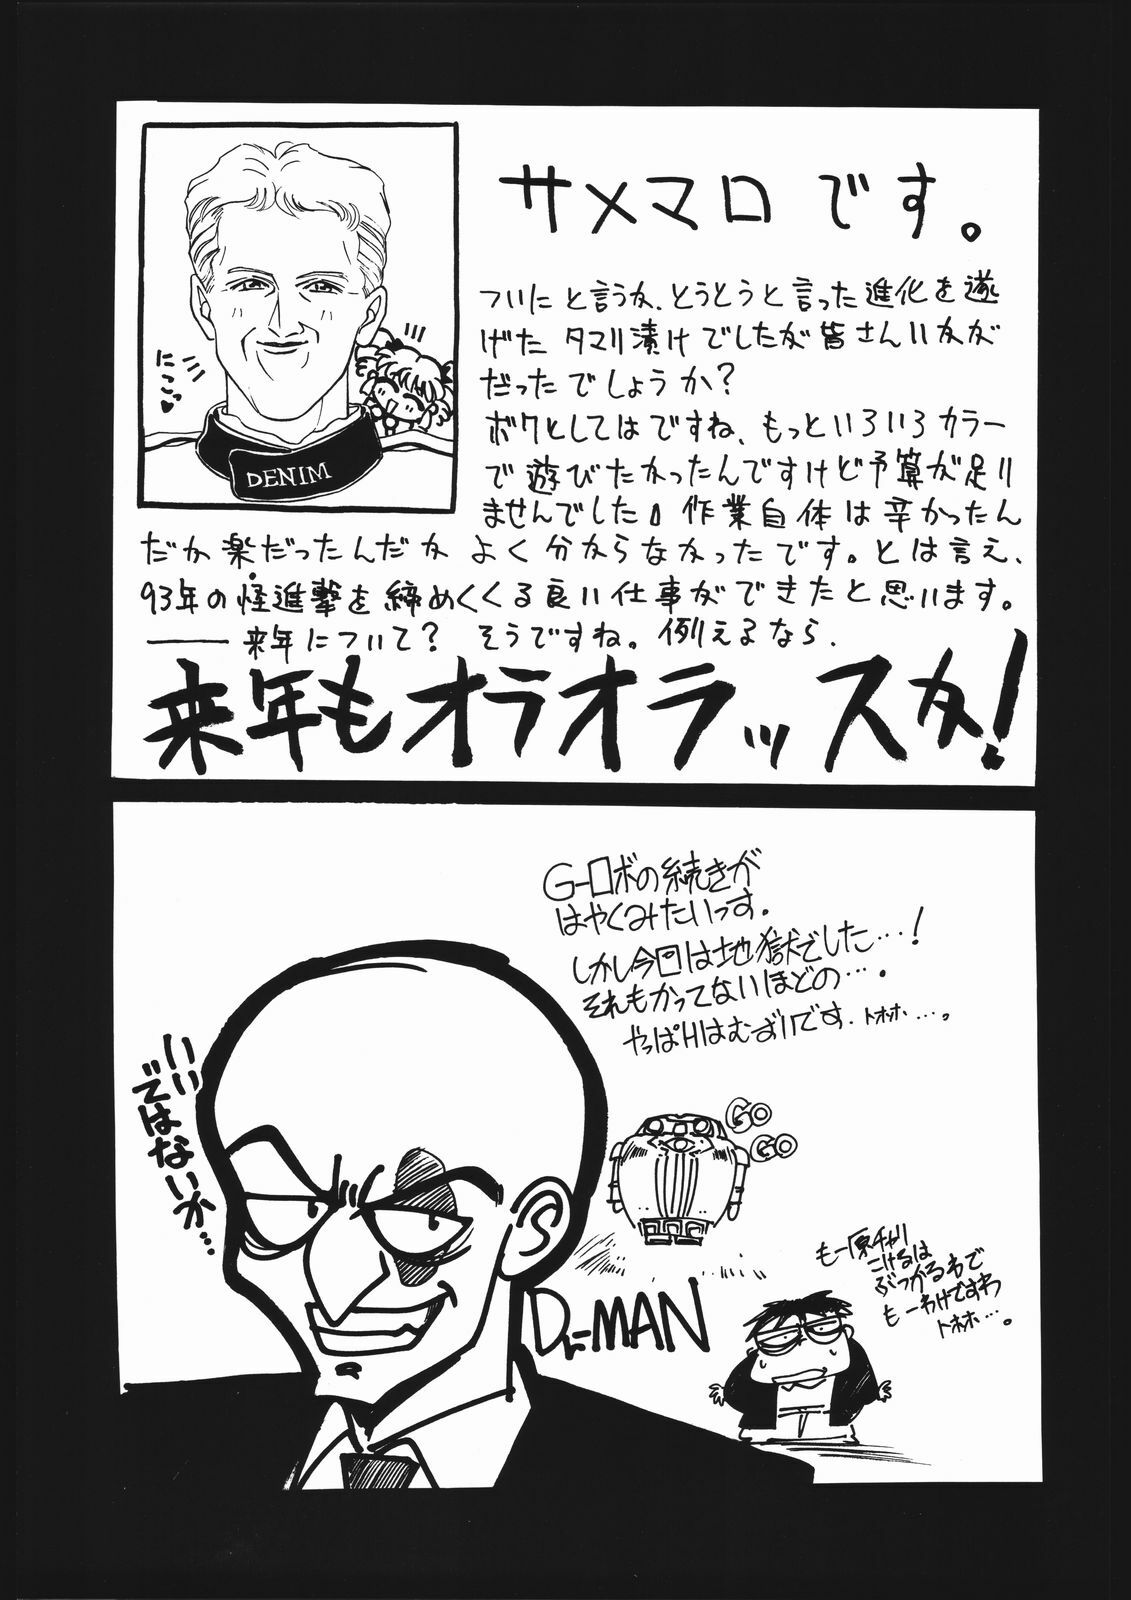 サメマロです。
ついにと言うか、とうとうと言った進化を遂
げたタマリ漬けでしたが皆さんいかが
だったでしょうか?
ボクとしてはですね、もっといろいろカラー
で遊びたかったんですけど予算が足り
ませんでした。作業自体は辛かったん
だか楽だったんだかよく分からなかったです。とは言え、
93年の怪進撃を締めくくる良い仕事ができたと思います。
——来年について? そうですね。例えるなら、
来年もオラオラッスか!
にこっ♥
DENIM
G-ロボの続きが
はやくみたいっす。
しかし今回は地獄でした…!
それもかってないほどの…。
やっぱHはむずいです. トホホ…。
いい
ではないか…
GO
GO
D,-MAN
もー原チャリ
こけるは
ぶつかるわで
もーわけですわ
トホホ…。